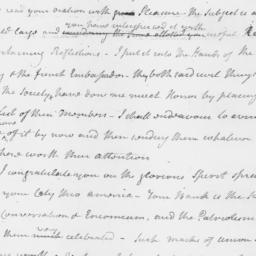 read your oration with great Pleasure - the Subject is a
you have interspersed it with
ed easy and useful
Reflections - I put it into the Hands of the
y the french Embassador. they both said civil things
The Society have done me much Honor by placing
list of their Members - I shall endeavour to
of it by now and then sending them whatever
worth their attention
I congratulate you on the glorious Spirit
your City thro america - Your Bank is the Su
Conversation & Encomium, and the Patriotism
them very celebrated - Such marks of union